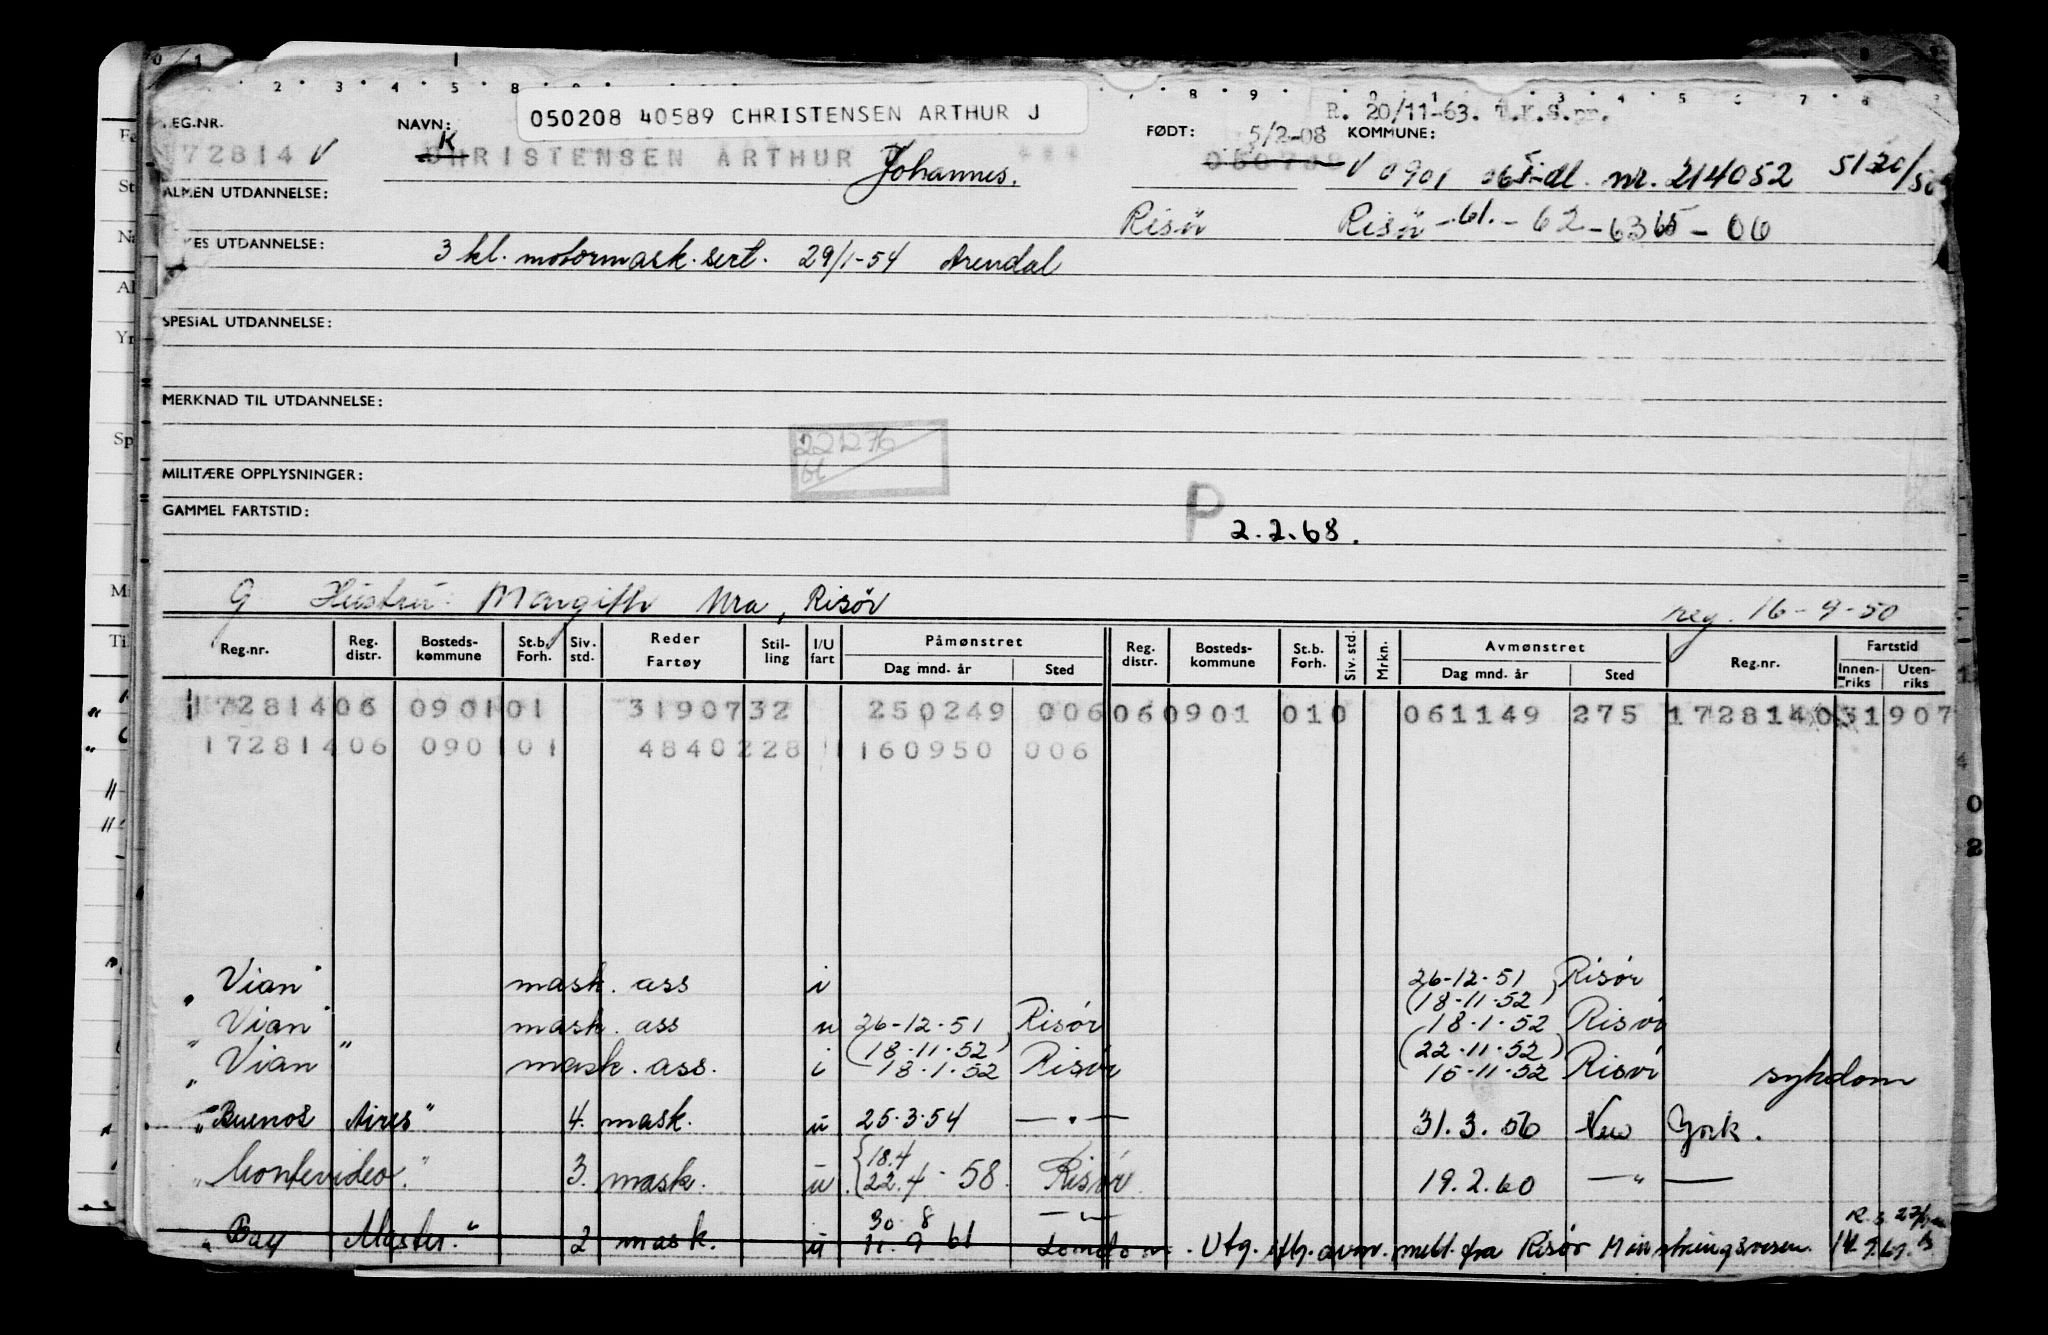 R. 20/11-63. T.K.S.pr.
REG.NR. NAVN: 050208 40589 CHRISTENSEN ARTHUR J FØDT: 5/2-08 KOMMUNE:
172814 V K CHRISTENSEN ARTHUR Johannes. V 0901 06 Fidl. nr. 214052 51 20/50
ALMEN UTDANNELSE:
Risør Risør -61.- 62 - 63 65 - 06
UTDANNELSE: 3 kl. motormask.sert. 29/1-54 Arendal
SPESIAL UTDANNELSE:
MERKNAD TIL UTDANNELSE:
221276
MILITÆRE OPPLYSNINGER:
GAMMEL FARTSTID: P 2.2.68.
G Hustru: Margith Ura, Risør reg. 16-9-50
Reg.nr. Reg. distr. Bosteds-kommune St.b. Forh. Siv. std. Reder Fartøy Stil-ling I/U fart Påmønstret Dag mnd. år Sted Reg. distr. Bosteds-kommune St.b. Forh. Siv. std. Mrkn. Avmønstret Dag mnd. år Sted Reg.nr. Fartstid Innen-riks Uten-riks
172814 06 0901 01 3190732 250249 006 06 0901 010 061149 275 172814 031907
172814 06 0901 01 4840228 160950 006
"Vian" mask. ass i 26-12-51 Risør
(18-11-52)
"Vian" mask. ass u 26-12-51 Risør 18-1-52 Risør
(18-11-52) (22-11-52)
"Vian" mask. ass. i 18-1-52 Risør 15-11-52 Risør sykdom
"Buenos Aires" 4. mask. u 25.3.54 — " — 31.3.56 New York.
18.4
"Montevideo." 3. mask. u 22.4-58. Risør 19.2.60 — " —
30 8 — " —
"Bay Master." 2 mask. u 11.9 61 London. Utg. iflg. avm. meld. fra Risør Mönstringsvesen 14.9.61.